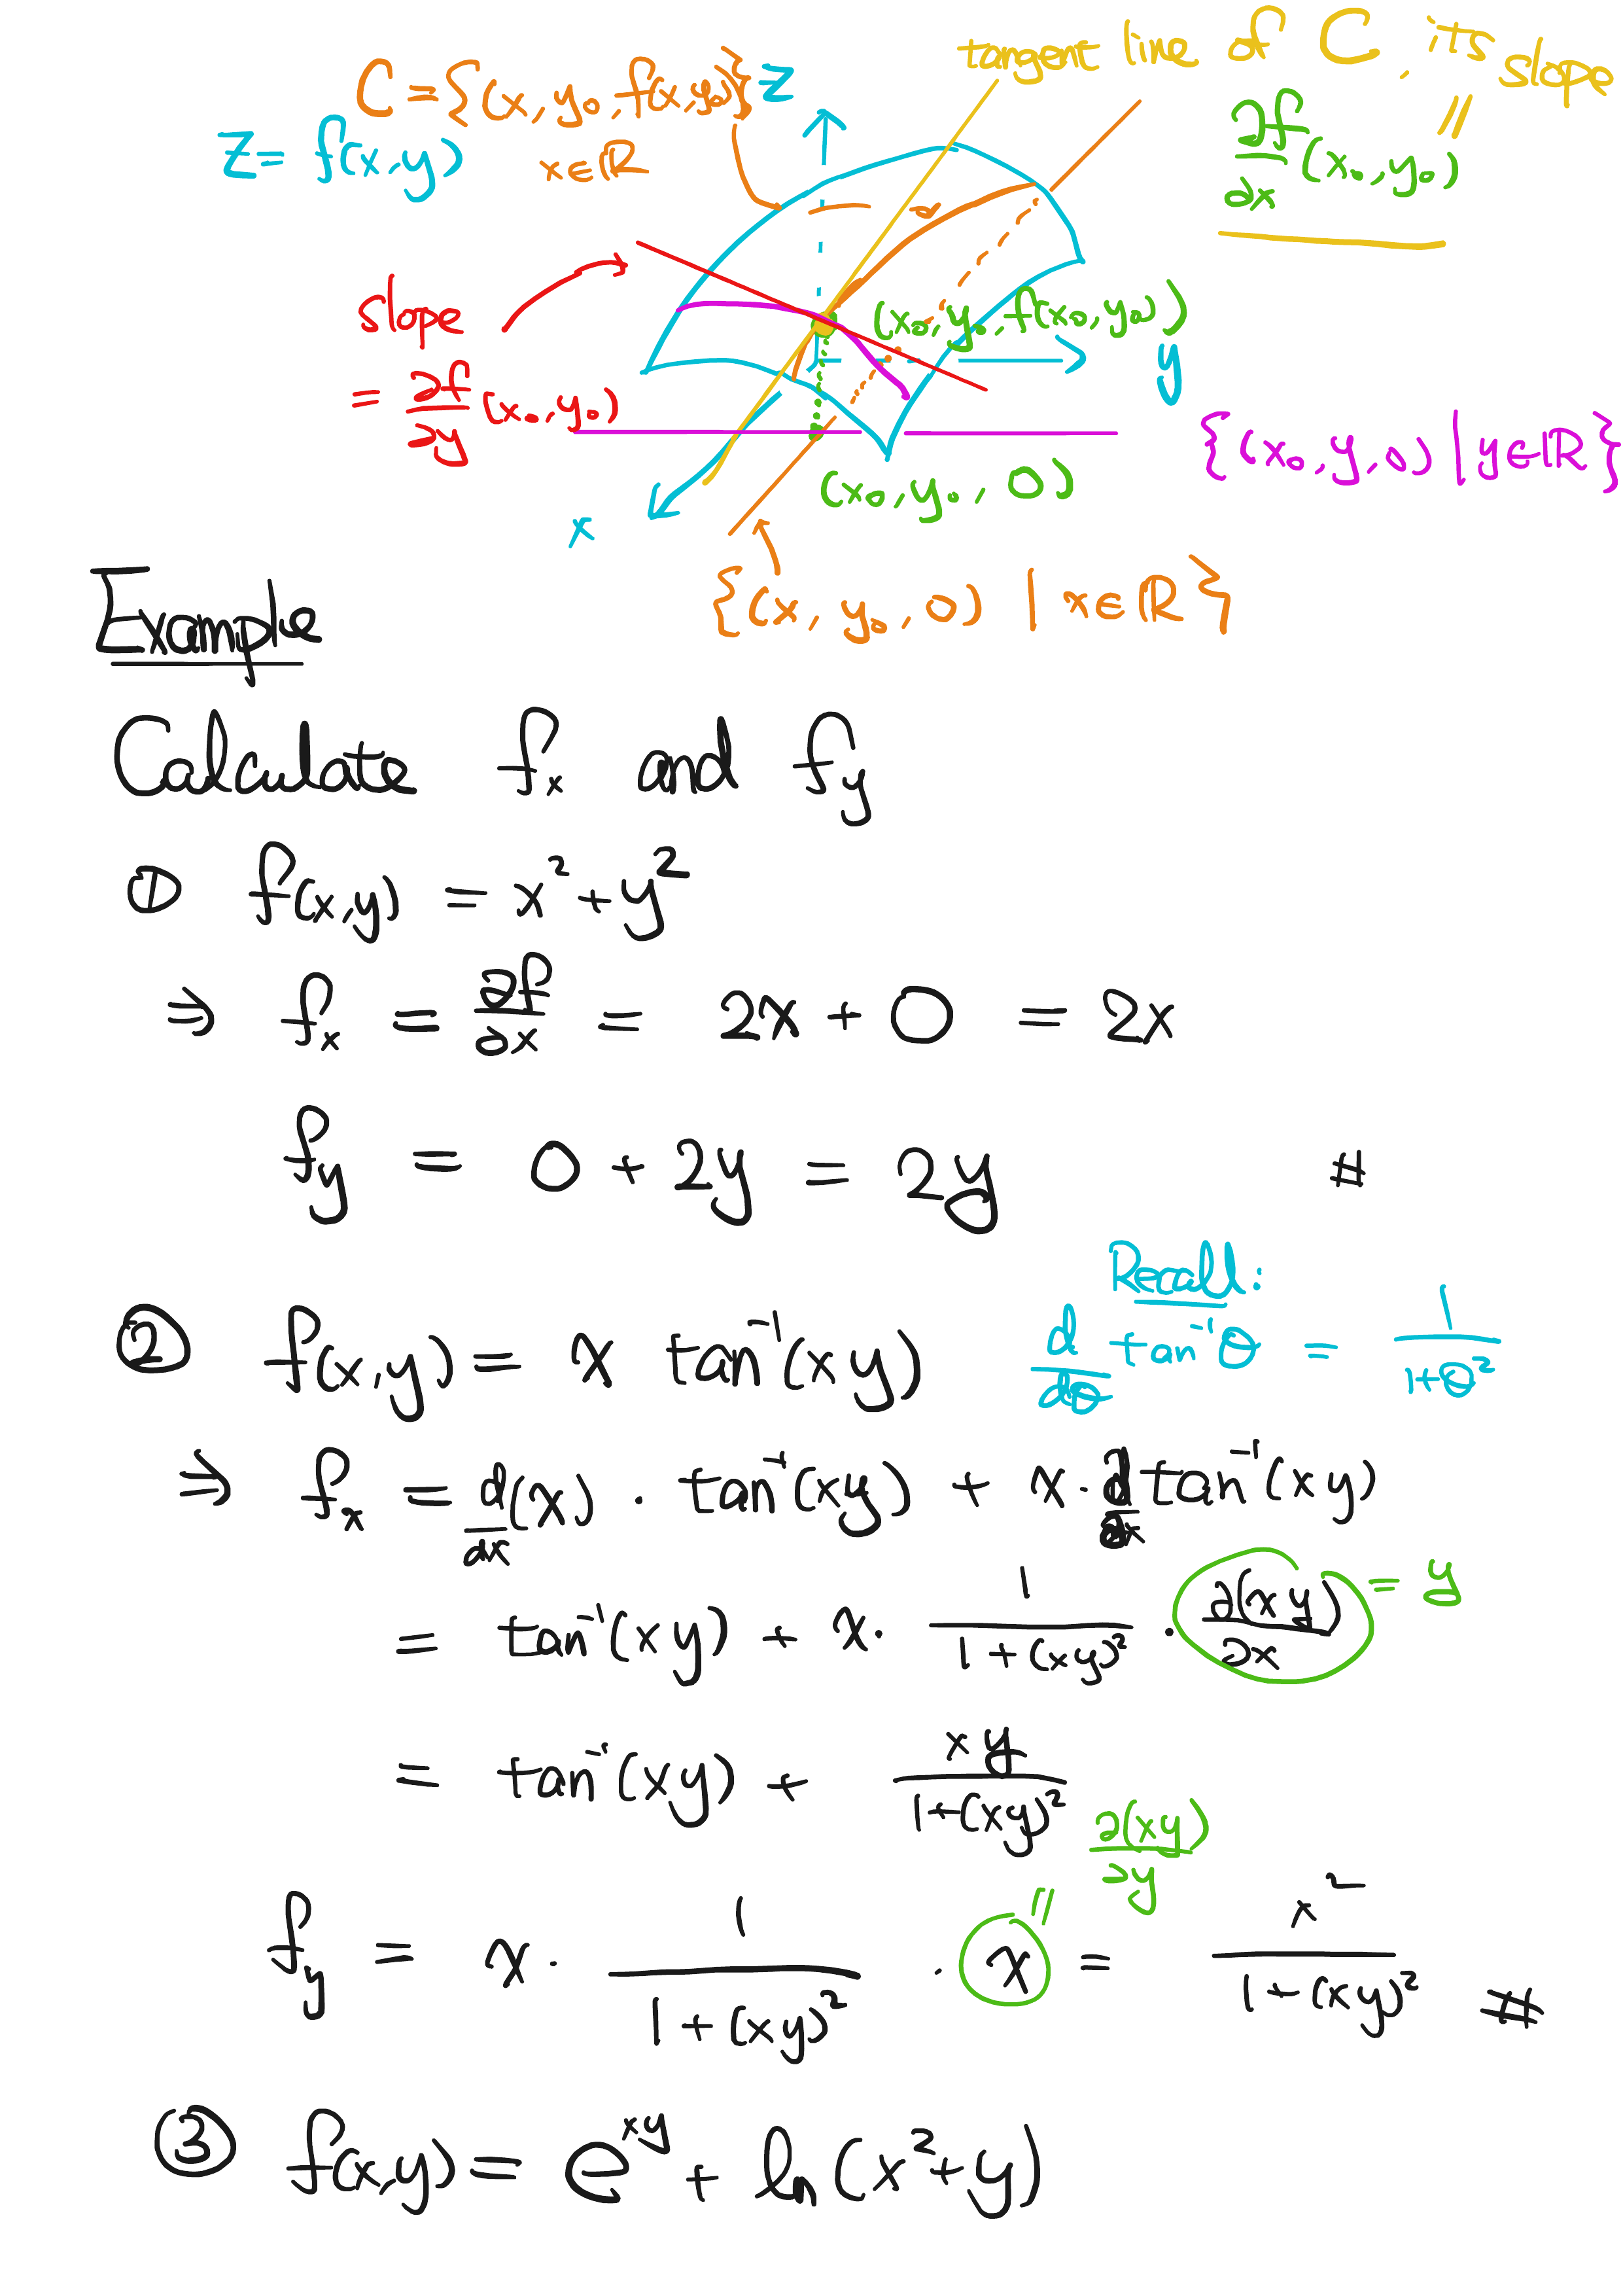 tangent line of C, its slope
C = {(x, y₀, f(x,y₀)} z
x∈ℝ
z = f(x,y)
∂f/∂x (x₀,y₀)
slope
= ∂f/∂y (x₀,y₀)
(x₀,y₀,f(x₀,y₀))
y
{(x₀,y,0) | y∈ℝ}
(x₀,y₀,0)
x
{(x,y₀,0) | x∈ℝ}
Example
Calculate fₓ and f_y
① f(x,y) = x²+y²
⇒ fₓ = ∂f/∂x = 2x + 0 = 2x
f_y = 0 + 2y = 2y #
Recall:
d/dθ tan⁻¹θ = 1/(1+θ²)
② f(x,y) = x tan⁻¹(xy)
⇒ fₓ = d/dx (x) · tan⁻¹(xy) + x · d/dx tan⁻¹(xy)
= tan⁻¹(xy) + x · 1/(1+(xy)²) · ∂(xy)/∂x = y
= tan⁻¹(xy) + xy/(1+(xy)²)
∂(xy)/∂y
f_y = x · 1/(1+(xy)²) · x = x²/(1+(xy)²) #
③ f(x,y) = e^{xy} + ln(x²+y)